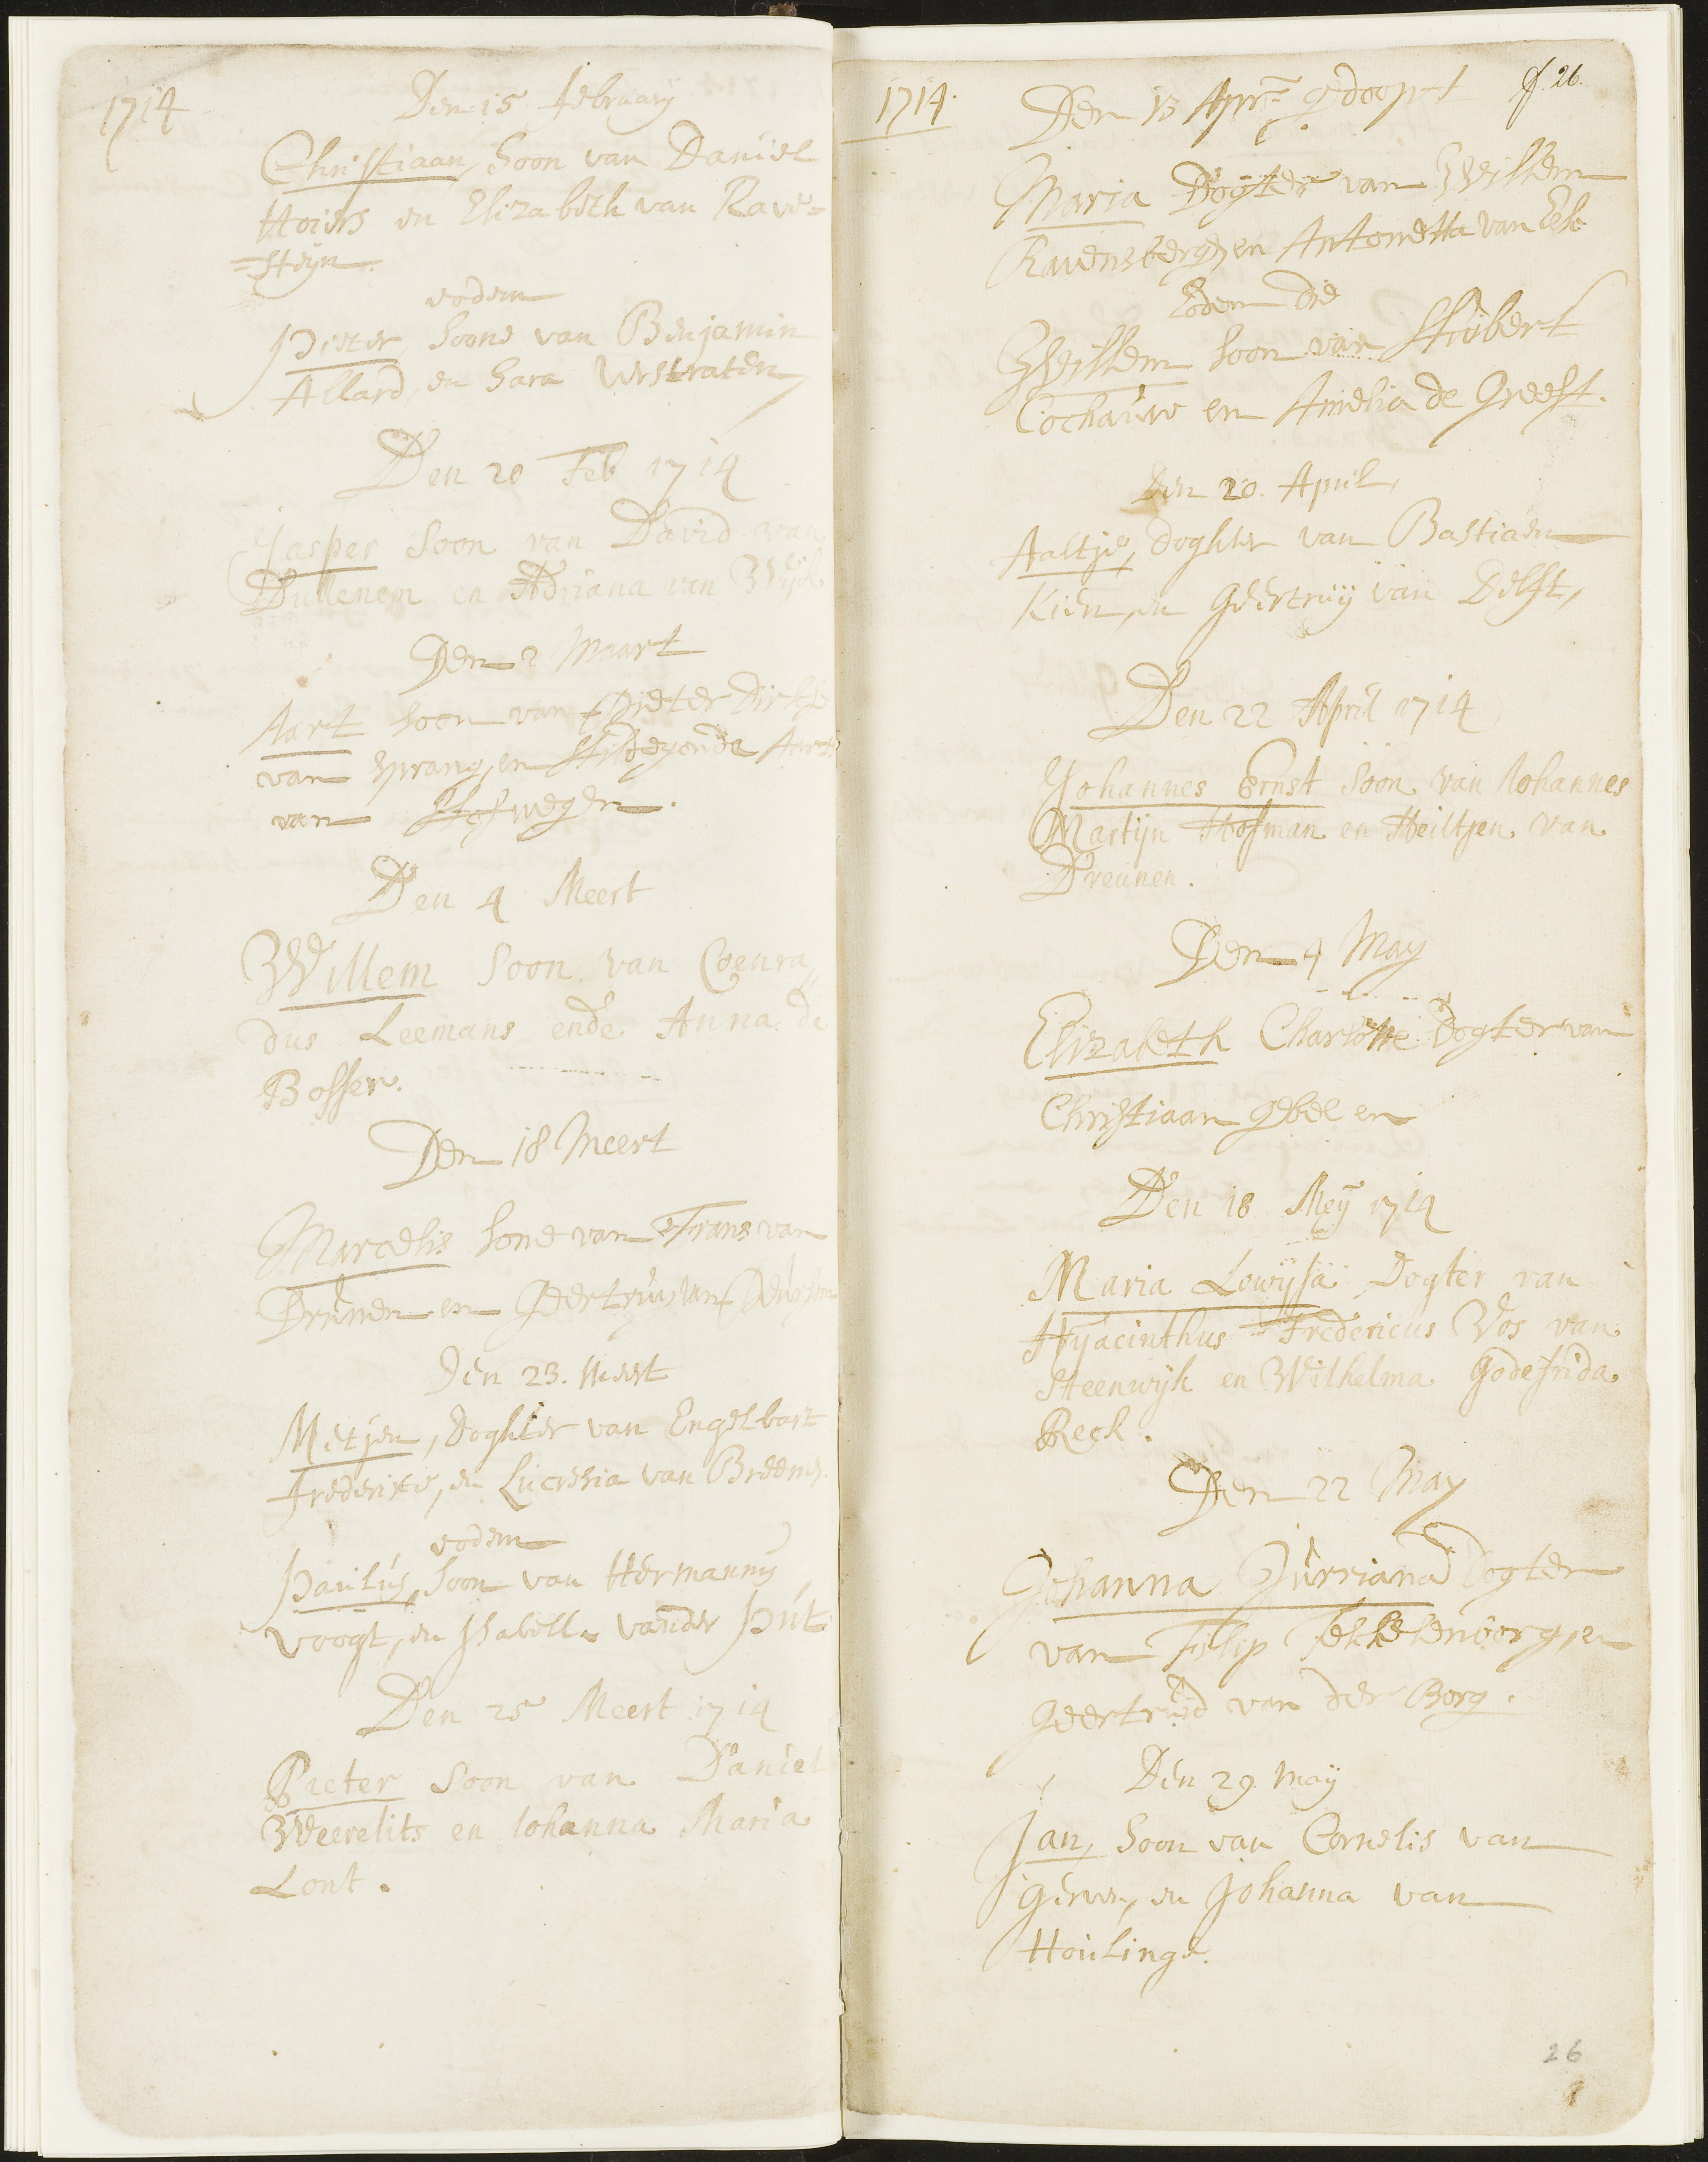 1714
Den 15 February
Christiaan, soon van Daniel
Hoiers en Elizabeth van Rave=
=steyn.
eodem
Pieter, soone van Benjamin
Allard, en Sara Verstraten,
Den 20 Feb 1714
Jasper Soon van David van
Dullenem en Adriana van Wijk
Den 2 Maart
Aart soon van Pieter Dirkse
van Sprang, en Hillegonda
van Hofwegen.
Den 4 Meert
Willem Soon van Coenra,,
dus Leemans ende Anna de
Bosser.
Den 18 Meert
Marcelis sone van Frans van
Drunen en Geertruy van
Den 23. Meert
Metjen, doghter van Engelbart
Frederikse, en Lucresia van Breene.
eodem
Paulus, soon van Hermannus
Voogt, en Isabella vander Put
Den 25 Meert 1714
Pieter Soon van Daniel
Weerelits en Iohanna Maria
Lont.
1714.
Den 13 Apr. gedoopt
f. 26.
Maria Dogter van Willem
Ravensbergh en Antonetta van Eck
Eodem die
Willem soon van Hubert
Cochauw en Amelia de Greeft.
Den 20. April,
Aaltje, doghter van Bastiaen
Kien, en Geertruy van Delft,
Den 22 April 1714
Johannes Ernst Soon van Iohannes
Martijn Hofman en Heiltjen van
Dreunen.
Den 4 May
Elizabeth Charlotte Dogter van
Christiaan Gebel en
Den 18 Mey 1714
Maria Lowysa Dogter van
Hyacinthus Fredericus Vos van
Steenwijk en Wilhelma Godefrida
Reck.
Den 22 May
Johanna Jurriana Dogter
van Filip Tekkelenborg, en
Geertruid van der Borg.
Den 29. May
Jan, soon van Cornelis van
Gerven, en Johanna van
Houlinge.
26